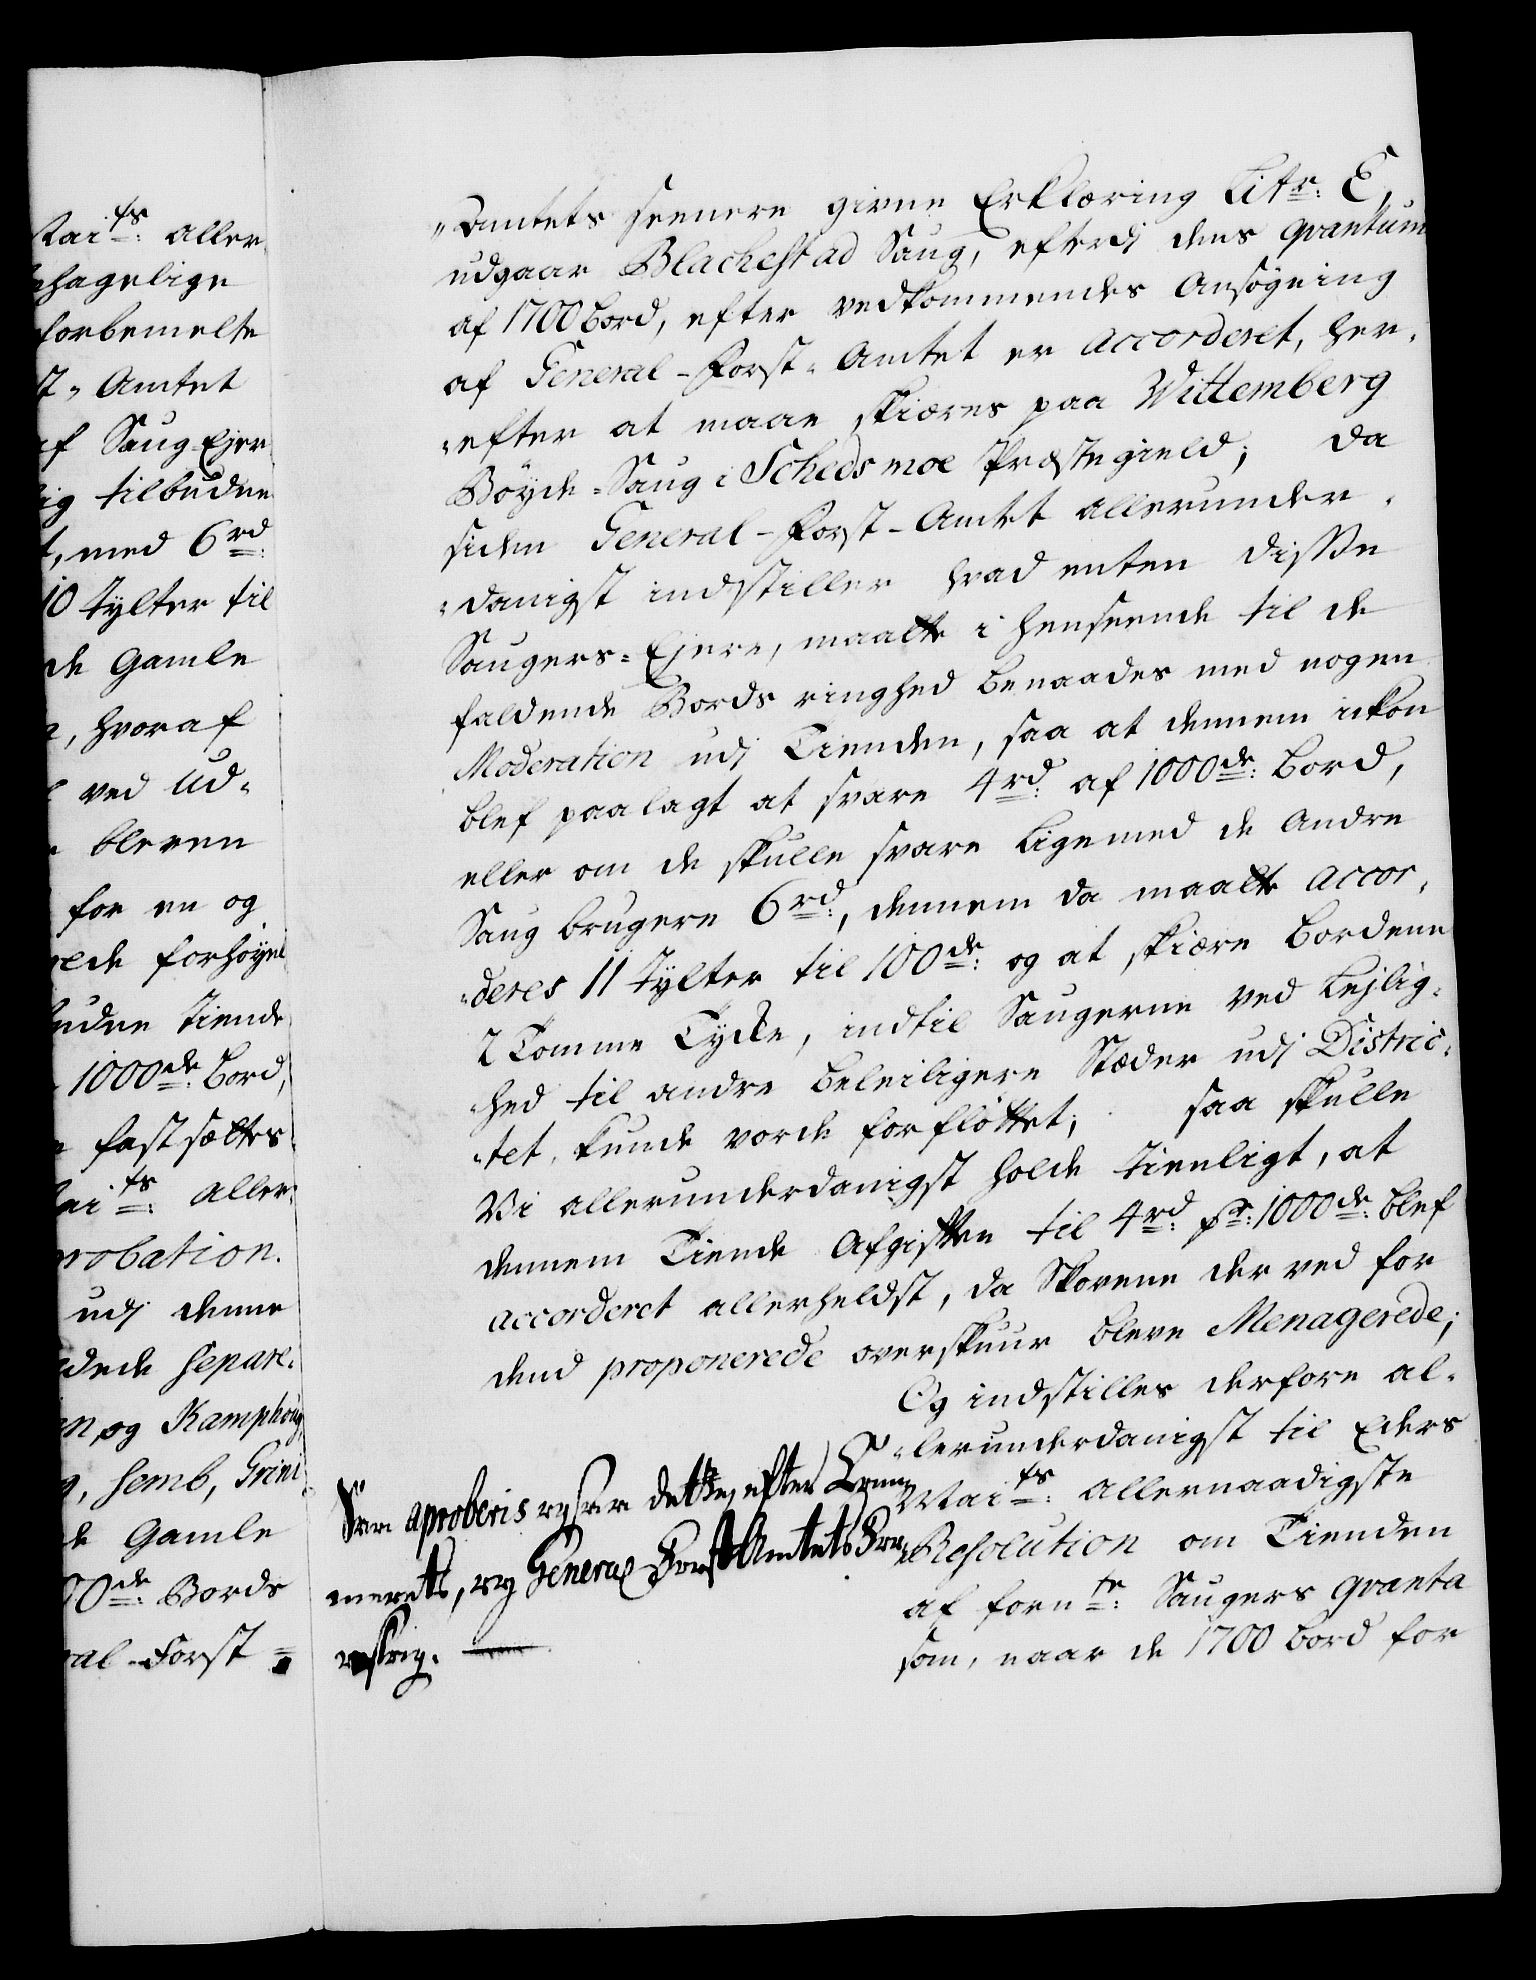 Maits: aller
behagelige
forbemelte
st-Amtet
af Saug-Ejer
lig tilbuden
t, med 6rd:
10 tylter til
de gamle
n, hvoraf
ved Ud-
bleven
for en og
rede forhöyel
budne tiende
1000de: bord,
fastsættes
Maits: aller-
probation.
udj denne
adede separe-
en, og Kamphoug,
g, semb, Grini
de Gamle
00de: Bords
ral-Forst-
"Amtets seenere givne Erklæring Litr: E,
udgaar Blachestad Saug, efterdj dens qvantum
af 1700 bord, efter vedkommendes Ansøgning
af General-Forst-Amtet er accorderet, her-
"efter at maae skiæres paa Wittemberg
Böyde-Saug i Schedsmoe Præstegield; da
siden General-Forst-Amtet allerunder-
"danigst indstiller hvad enten disse
Saugers-Ejere, maatte i henseende til de
faldende Bords ringhed benaades med nogen
Moderation udj Tienden, saa at dennem ickon
blef paalagt at svare 4rd: af 1000de: bord,
eller om de skulle svare lige med de andre
Saugbrugere 6rd:, dennem da maatte accor-
"deres 11 tylter til 100de: og at skiære bordene
2 Tomme Tycke, indtil Saugerne ved Lejlig-
"hed til andre beleiligere Stæder udj Distric-
"tet, kunde vorde forflöttet; saa skulle
Vi allerunderdanigst holde tienligt, at
dennem Tiende Afgiften til 4rd: pr: 1000de: blef
accorderet allerheldst, da Skovene derved for
dend proponerede overskuur bleve Menagerede;
Og indstilles derfore al-
"lerunderdanigst til Eders
Maits: allernaadigste
Resolution om Tienden
af fornte: Saugers qvanta
som, naar de 1700 bord for
aproberis dette, efter
merets, og General-Forst-Amtets